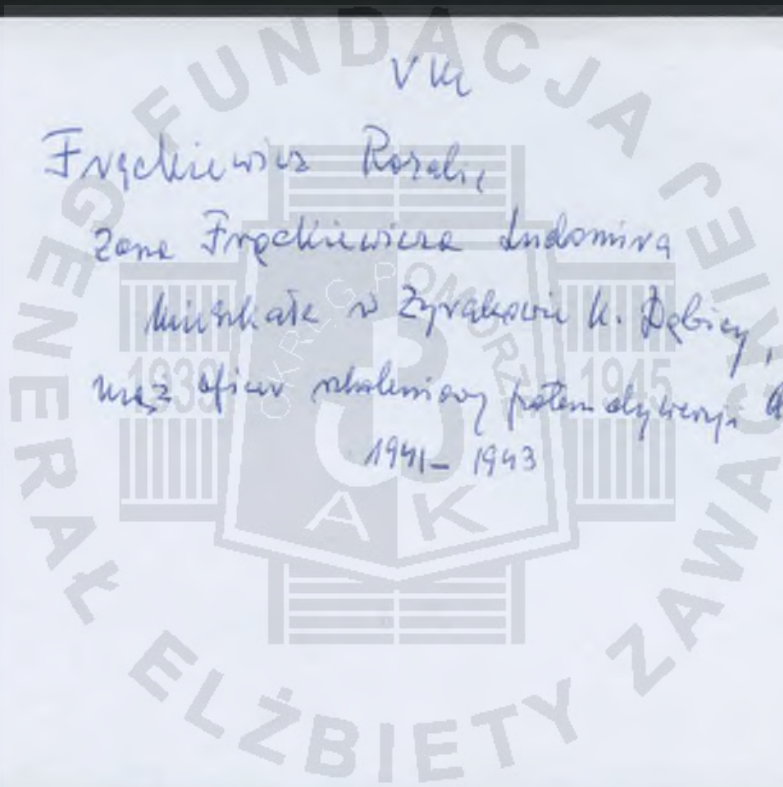 Frąckiewicz Rozalia
żona Frąckiewicza Ludomira
mieszkała w Żyrakowie k. Dębicy,
mąż oficer szkoleniowy potem dywersji
1941 – 1943
FUNDACJA GENERAŁ ELŻBIETY ZAWACKIEJ
OKRĘG POMORZE
1939 1945
AK